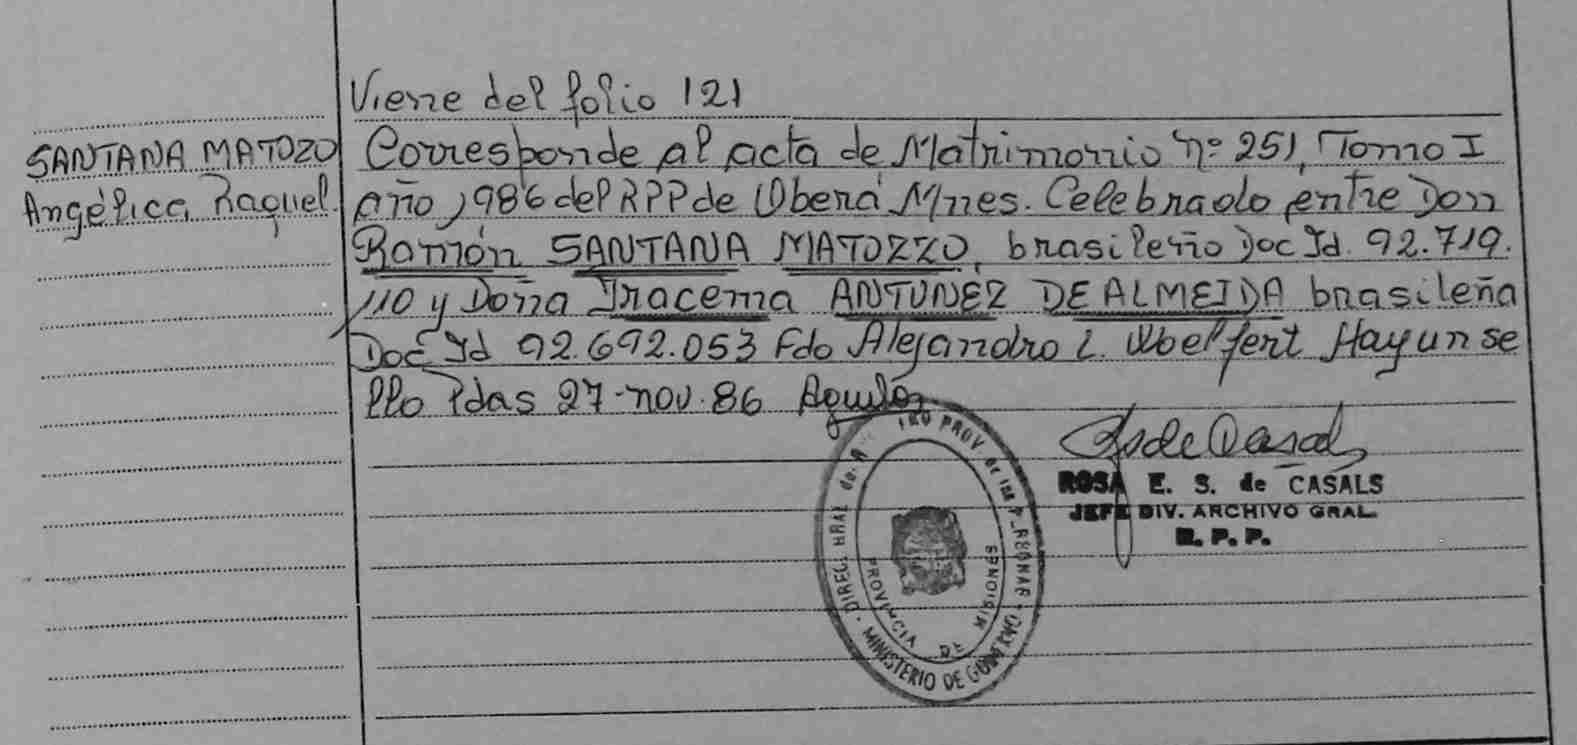 Viene del folio 121
SANTANA MATOZO
Angélica Raquel.
Corresponde al acta de Matrimonio nº 251, Tomo I
año 1986 del RPP de Oberá Mnes. Celebrado entre Don
Ramón SANTANA MATOZZO, brasileño Doc Id. 92.719.
110 y Doña Iracema ANTUNEZ DE ALMEIDA brasileña
Doc Id 92.692.053 Fdo Alejandro L. Hay un se
llo Pdas 27-nov.86
PROV de las
MINISTERIO DE GOBIERNO
PROVINCIA DE MISIONES
ROSA E. S. de CASALS
JEFE DIV. ARCHIVO GRAL.
R. P. P.